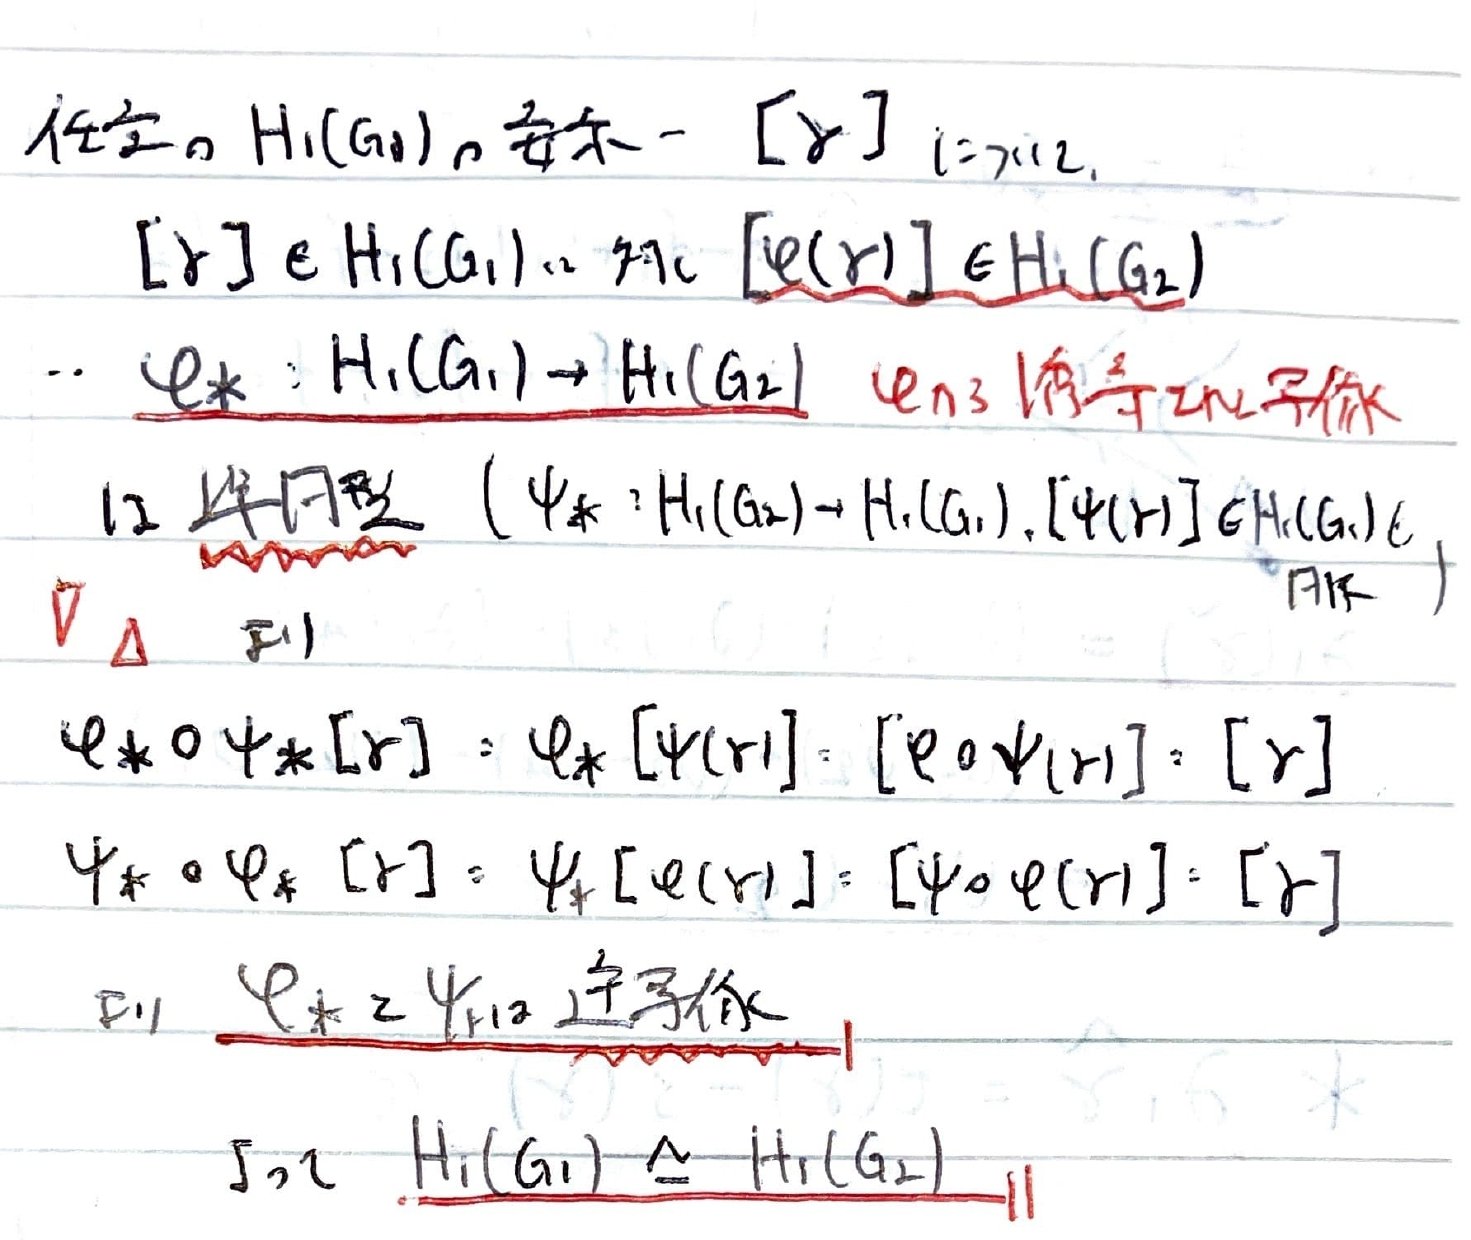 任意の H₁(G₁)の要素 [γ] について.
[γ] ∈ H₁(G₁) に対して [φ(γ)] ∈ H₁(G₂)
∵ φ* : H₁(G₁) → H₁(G₂) φから誘導された写像
は 準同型 ( ψ* : H₁(G₂) → H₁(G₁). [ψ(γ)] ∈ H₁(G₁) も 同様 )
▽ △ より
φ* ∘ ψ* [γ] = φ* [ψ(γ)] = [φ ∘ ψ(γ)] = [γ]
ψ* ∘ φ* [γ] = ψ* [φ(γ)] = [ψ ∘ φ(γ)] = [γ]
より φ* と ψ* は 逆写像
よって H₁(G₁) ≃ H₁(G₂)